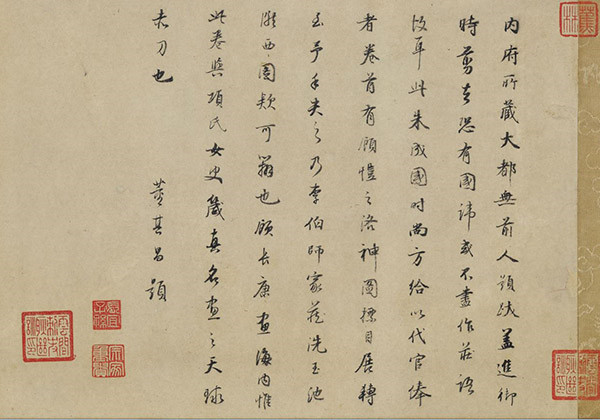 內府所藏大都無前人題跋蓋進御
時剪去恐有國諱或不盡作莊語
故耳此朱成國時尚方給以代官俸
者卷首有顧愷之洛神圖標目展轉
至予手失之乃李伯師家藏洗玉池
西圖款可辯也顧長康畫海內惟
此卷與項氏女史箴真名畫之天球
赤刀也
董其昌題